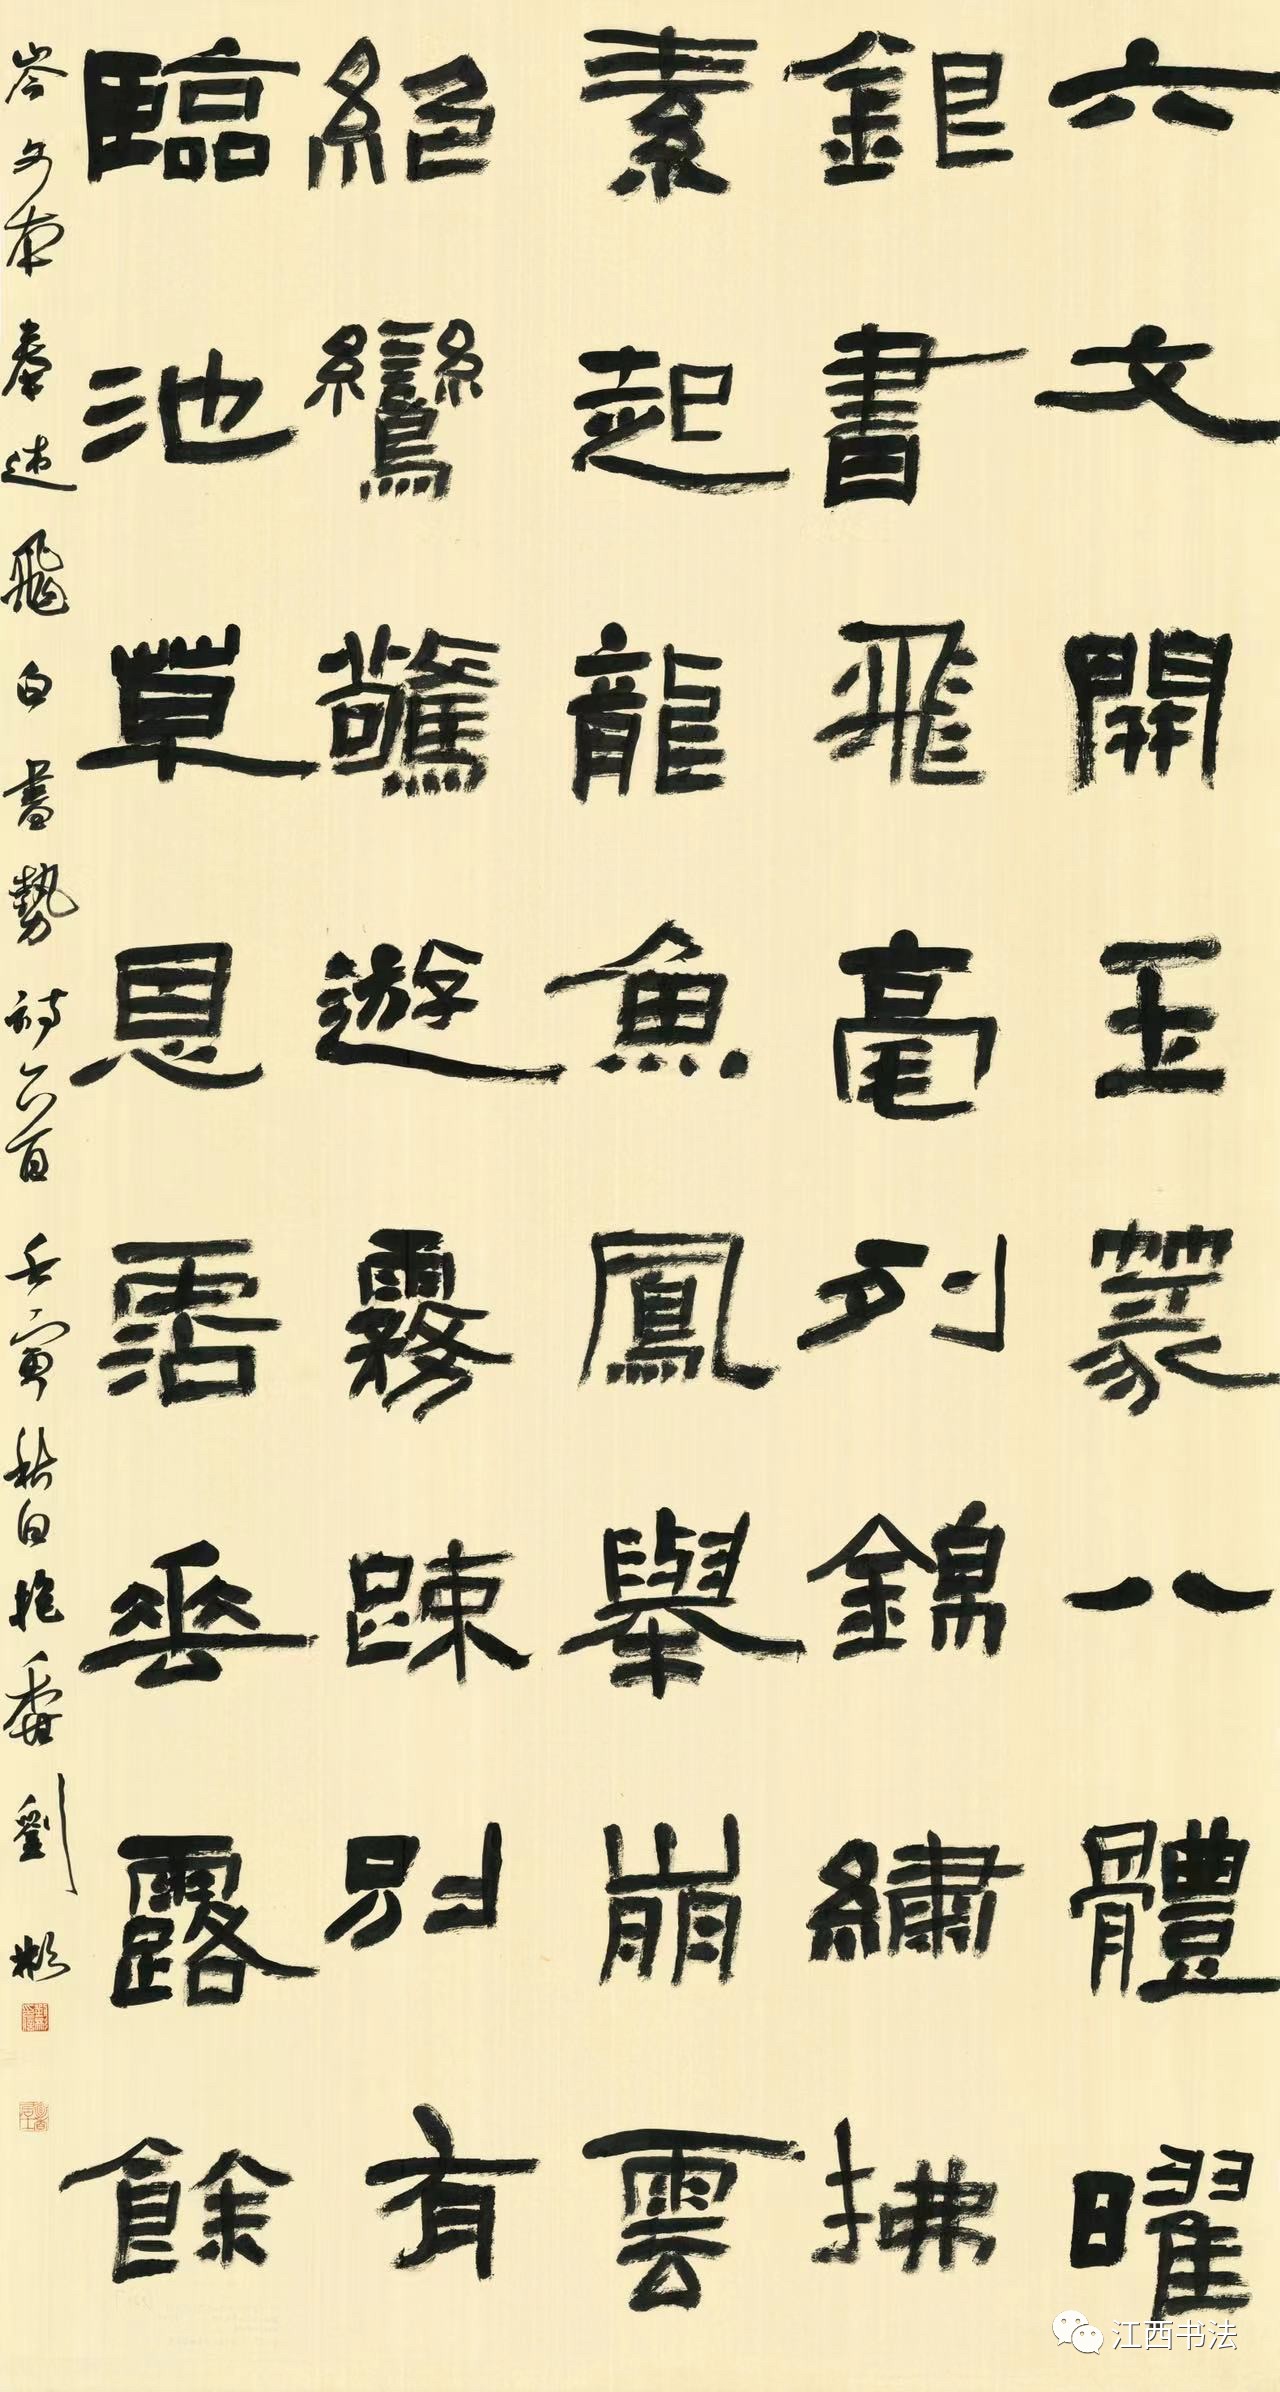 六文開玉篆八體曜
銀書飛毫列錦繡拂
素起龍魚鳳舉崩雲
絕鸞驚遊霧踈別有
臨池草恩霑垂露餘
岑文本奉述飛白書勢詩一首 壬寅秋白 劉彬
江西书法